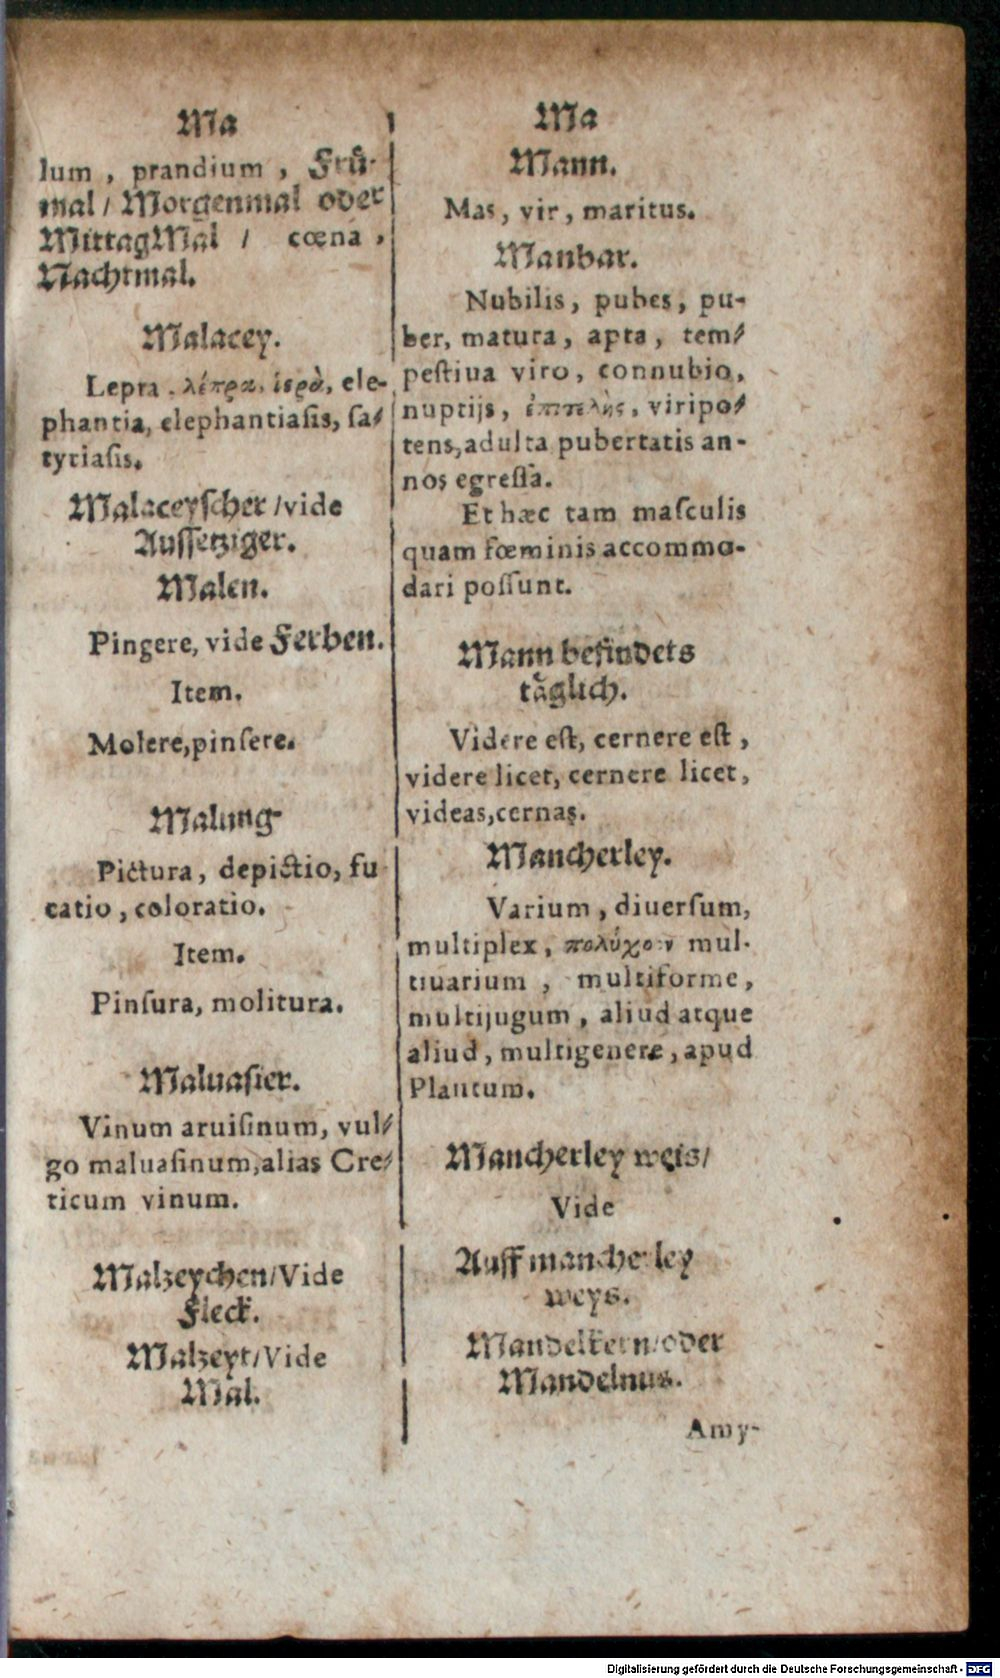 Ma
lum, prandium, Frü-
mal / Morgenmal oder
MittagMal / cœna,
Nachtmal.
Malacey.
Lepra, λέπρα, ἱερὰ, ele-
phantia, elephantiaſis, ſa-
tyriaſis.
Malaceyſcher / vide
Auſſetziger.
Malen.
Pingere, vide Ferben.
Item.
Molere, pinſere.
Malung
Pictura, depictio, fu
catio, coloratio.
Item.
Pinſura, molitura.
Maluaſier.
Vinum aruiſinum, vul-
go maluaſinum, alias Cre-
ticum vinum.
Malzeychen / Vide
Fleck.
Malzeyt / Vide
Mal.
Ma
Mann.
Mas, vir, maritus.
Manbar.
Nubilis, pubes, pu-
ber, matura, apta, tem-
peſtiua viro, connubio,
nuptijs, viripo-
tens, adulta pubertatis an-
nos egreſſa.
Et hæc tam maſculis
quam fœminis accommo-
dari poſſunt.
Mann befindets
täglich.
Videre eſt, cernere eſt,
videre licet, cernere licet,
videas, cernas.
Mancherley.
Varium, diuerſum,
multiplex, mul-
tiuarium, multiforme,
multijugum, aliud atque
aliud, multigenere, apud
Plautum.
Mancherley weis /
Vide
Auff mancherley
weys.
Mandelkern / oder
Mandelnus.
Amy-
Digitalisierung gefördert durch die Deutsche Forschungsgemeinschaft - DFG